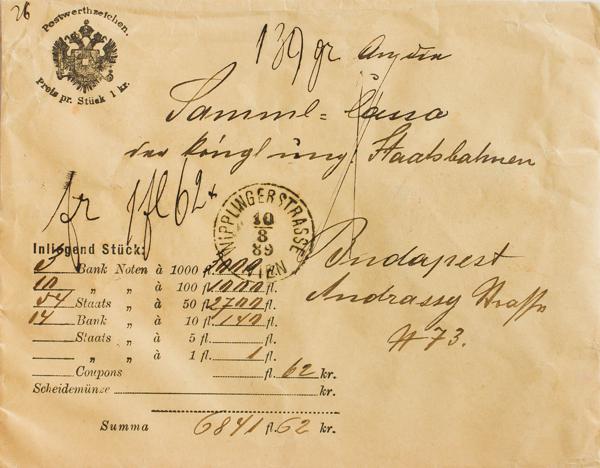 26
Postwerthzeichen.
Preis pr. Stück 1 kr.
139 gr An die
Samml=Cassa
der königl ung. Staatsbahnen
fr 1 fl 62 x
WIPPLINGERSTRASSE
10
8
89
WIEN
Budapest
Andrassy Strasse
N 73.
Inliegend Stück:
3 Bank Noten à 1000 fl. 3000
10 „ „ à 100 fl. 1000
54 Staats „ à 50 fl. 2700
14 Bank „ à 10 fl. 140
Staats „ à 5 fl.
„ „ à 1 fl. 1
Coupons fl. 62 kr.
Scheidemünze kr.
Summa 6841 fl. 62 kr.